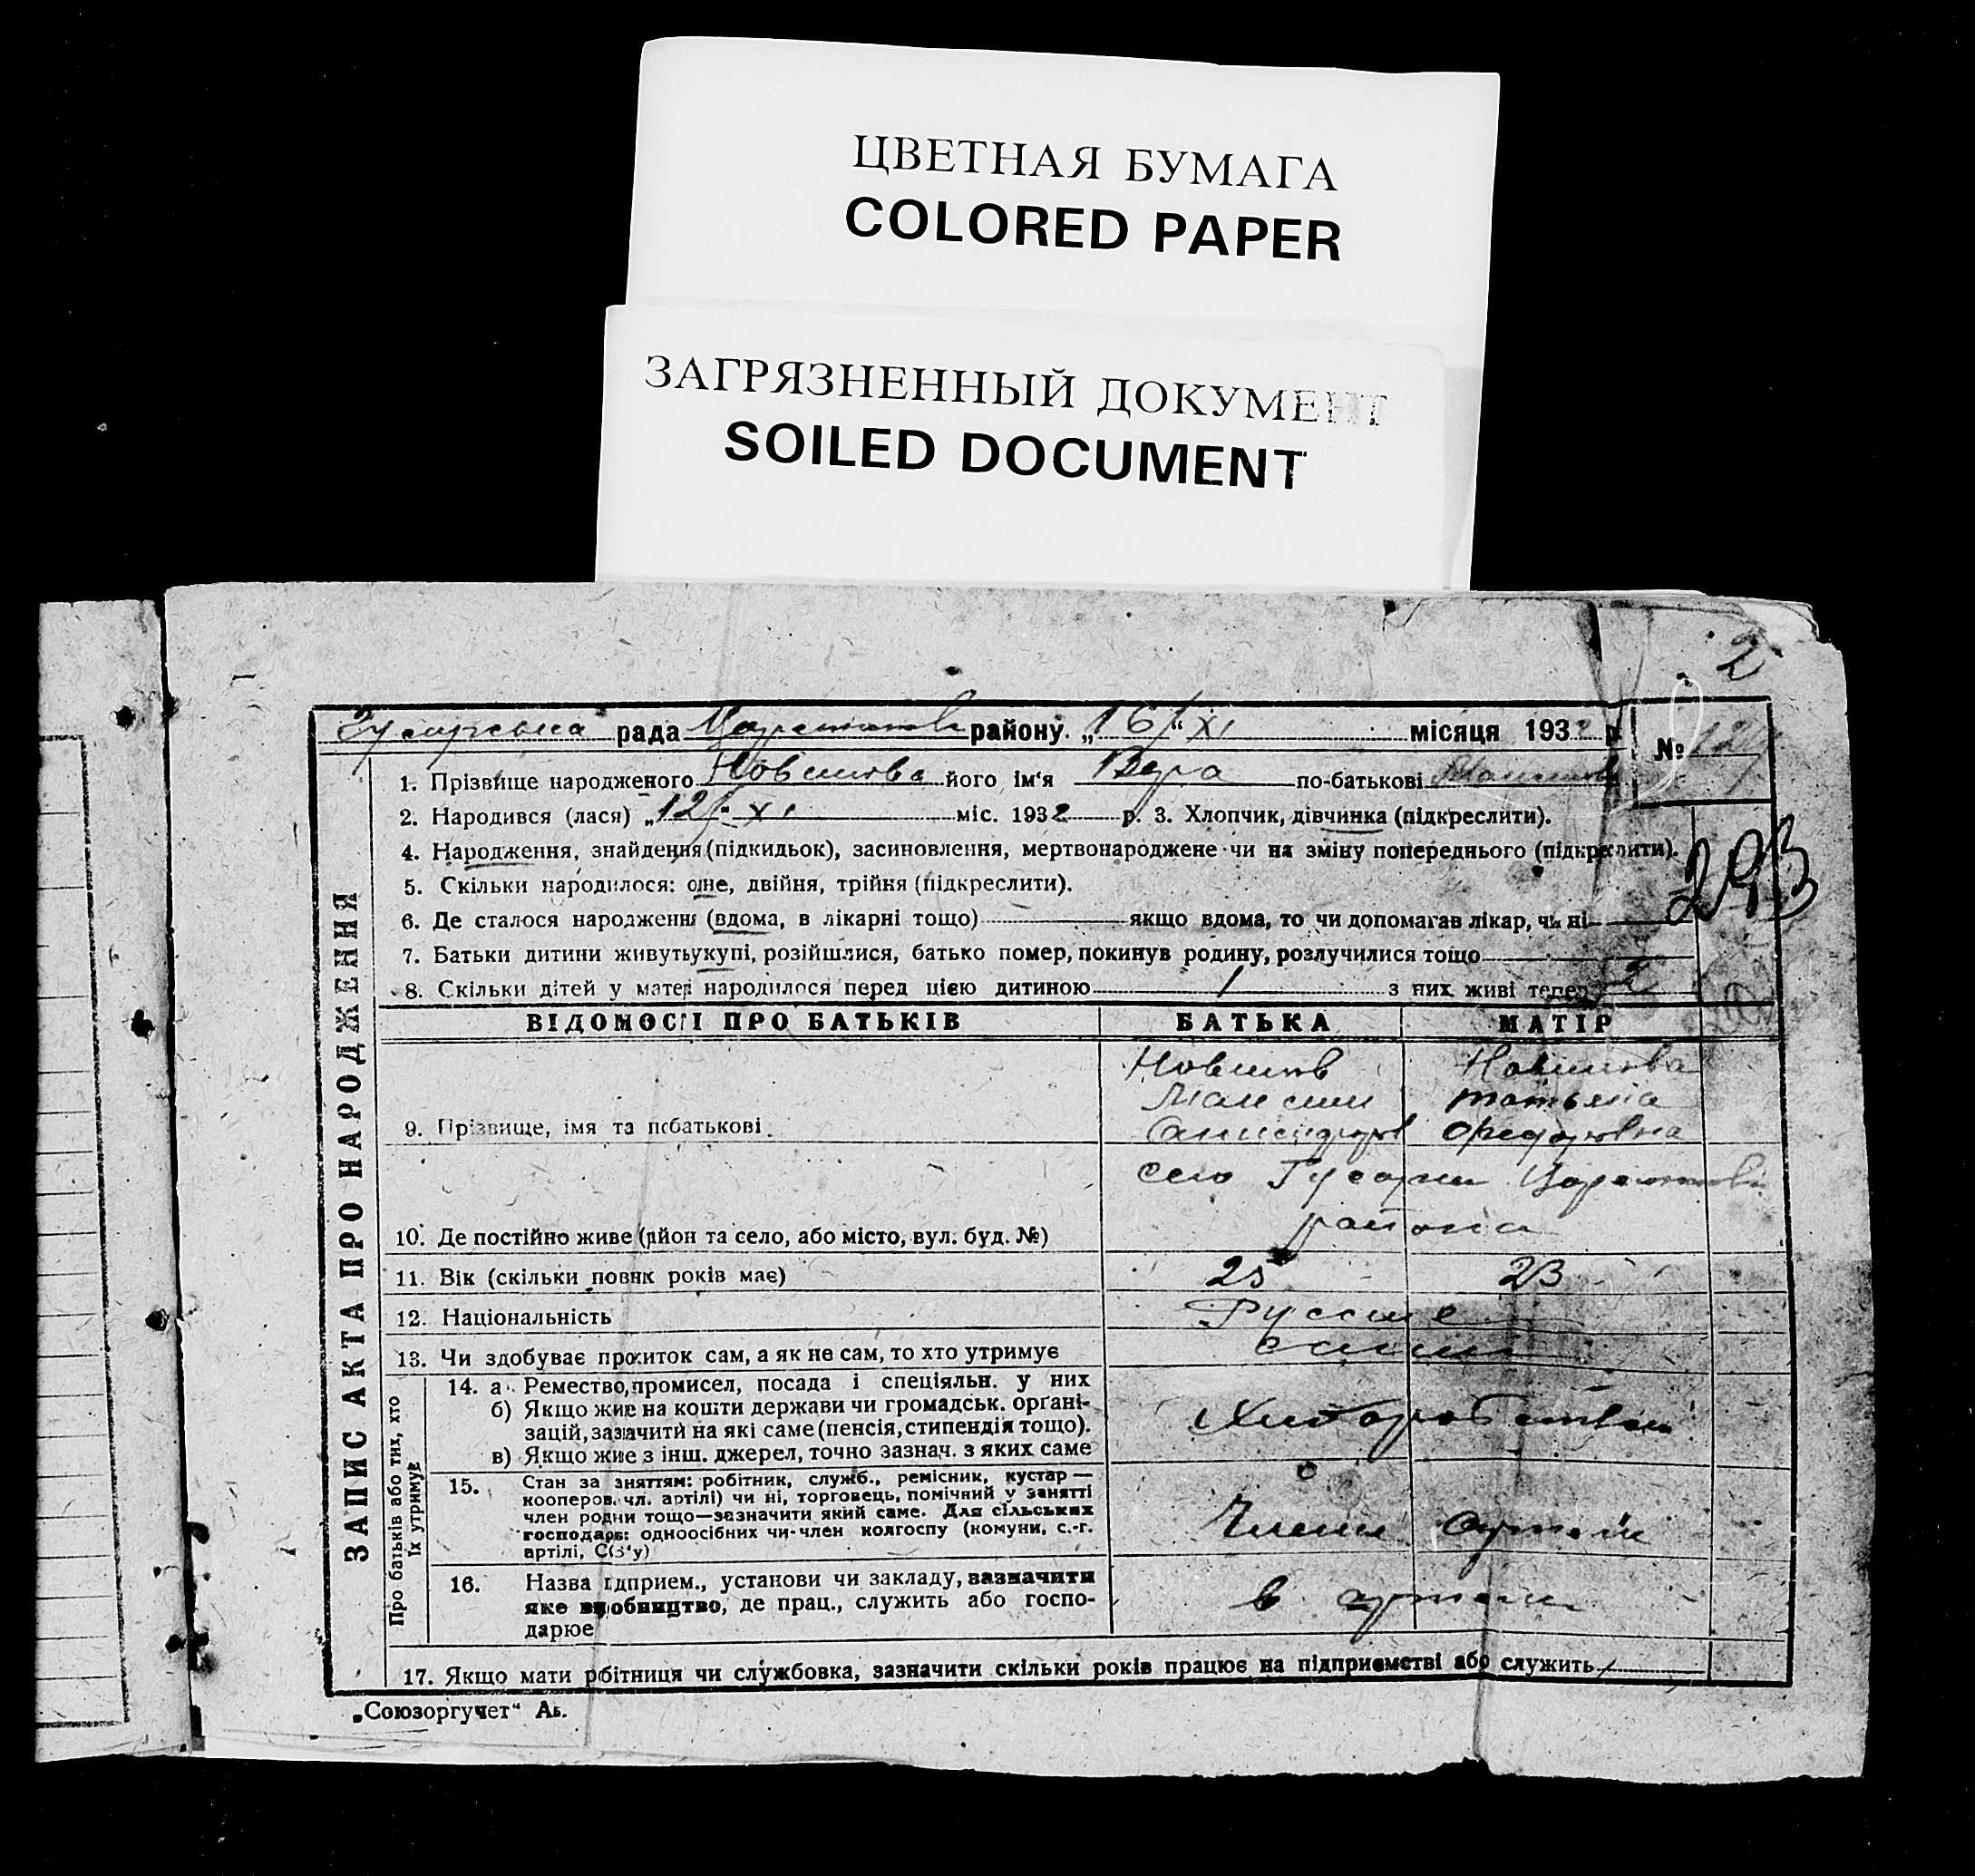 ЦВЕТНАЯ БУМАГА
COLORED PAPER
ЗАГРЯЗНЕННЫЙ ДОКУМЕНТ
SOILED DOCUMENT
2
рада району „16“ XI місяця 1932 р. №
1. Прізвище народженого Новикова його ім'я Вера по-батькові
2. Народився (лася) „12“ XI міс. 1932 р. 3. Хлопчик, дівчинка (підкреслити).
4. Народження, знайдення (підкидьок), засиновлення, мертвонароджене чи на зміну попереднього (підкреслити).
293
5. Скільки народилося: одне, двійня, трійня (підкреслити).
6. Де сталося народження (вдома, в лікарні тощо) якщо вдома, то чи допомагав лікар, чи ні
7. Батьки дитини живуть укупі, розійшлися, батько помер, покинув родину, розлучилися тощо
8. Скільки дітей у матері народилося перед цією дитиною 1 з них живі тепер 2
ЗАПИС АКТА ПРО НАРОДЖЕННЯ
ВІДОМОСТІ ПРО БАТЬКІВ БАТЬКА МАТІР
Новиков Новикова
Максим татьяна
9. Прізвище, імя та побатькові
село Гусарки
района
10. Де постійно живе (район та село, або місто, вул. буд. №)
11. Вік (скільки повних років має) 25 23
12. Національність Русские
13. Чи здобуває прожиток сам, а як не сам, то хто утримує сами
Про батьків або тих, хто їх утримує
14. а) Ремество, промисел, посада і спеціяльн. у них
б) Якщо живе на кошти держави чи громадськ. орґані-
зацій, зазначити на які саме (пенсія, стипендія тощо).
в) Якщо живе з інш. джерел, точно зазнач. з яких саме
15. Стан за заняттям: робітник, служб., ремісник, кустар —
кооперов. чл. артілі) чи ні, торговець, помічний у занятті
член родини тощо—зазначити який саме. Для сільських
господарів: одноосібних чи член колгоспу (комуни, с.-г.
артілі, СОЗ'у)
Члени артели
16. Назва підприєм., установи чи закладу, зазначити
яке виробництво, де прац., служить або госпо-
дарює
в артели
17. Якщо мати робітниця чи службовка, зазначити скільки років працює на підприємстві або служить
„Союзоргучет“